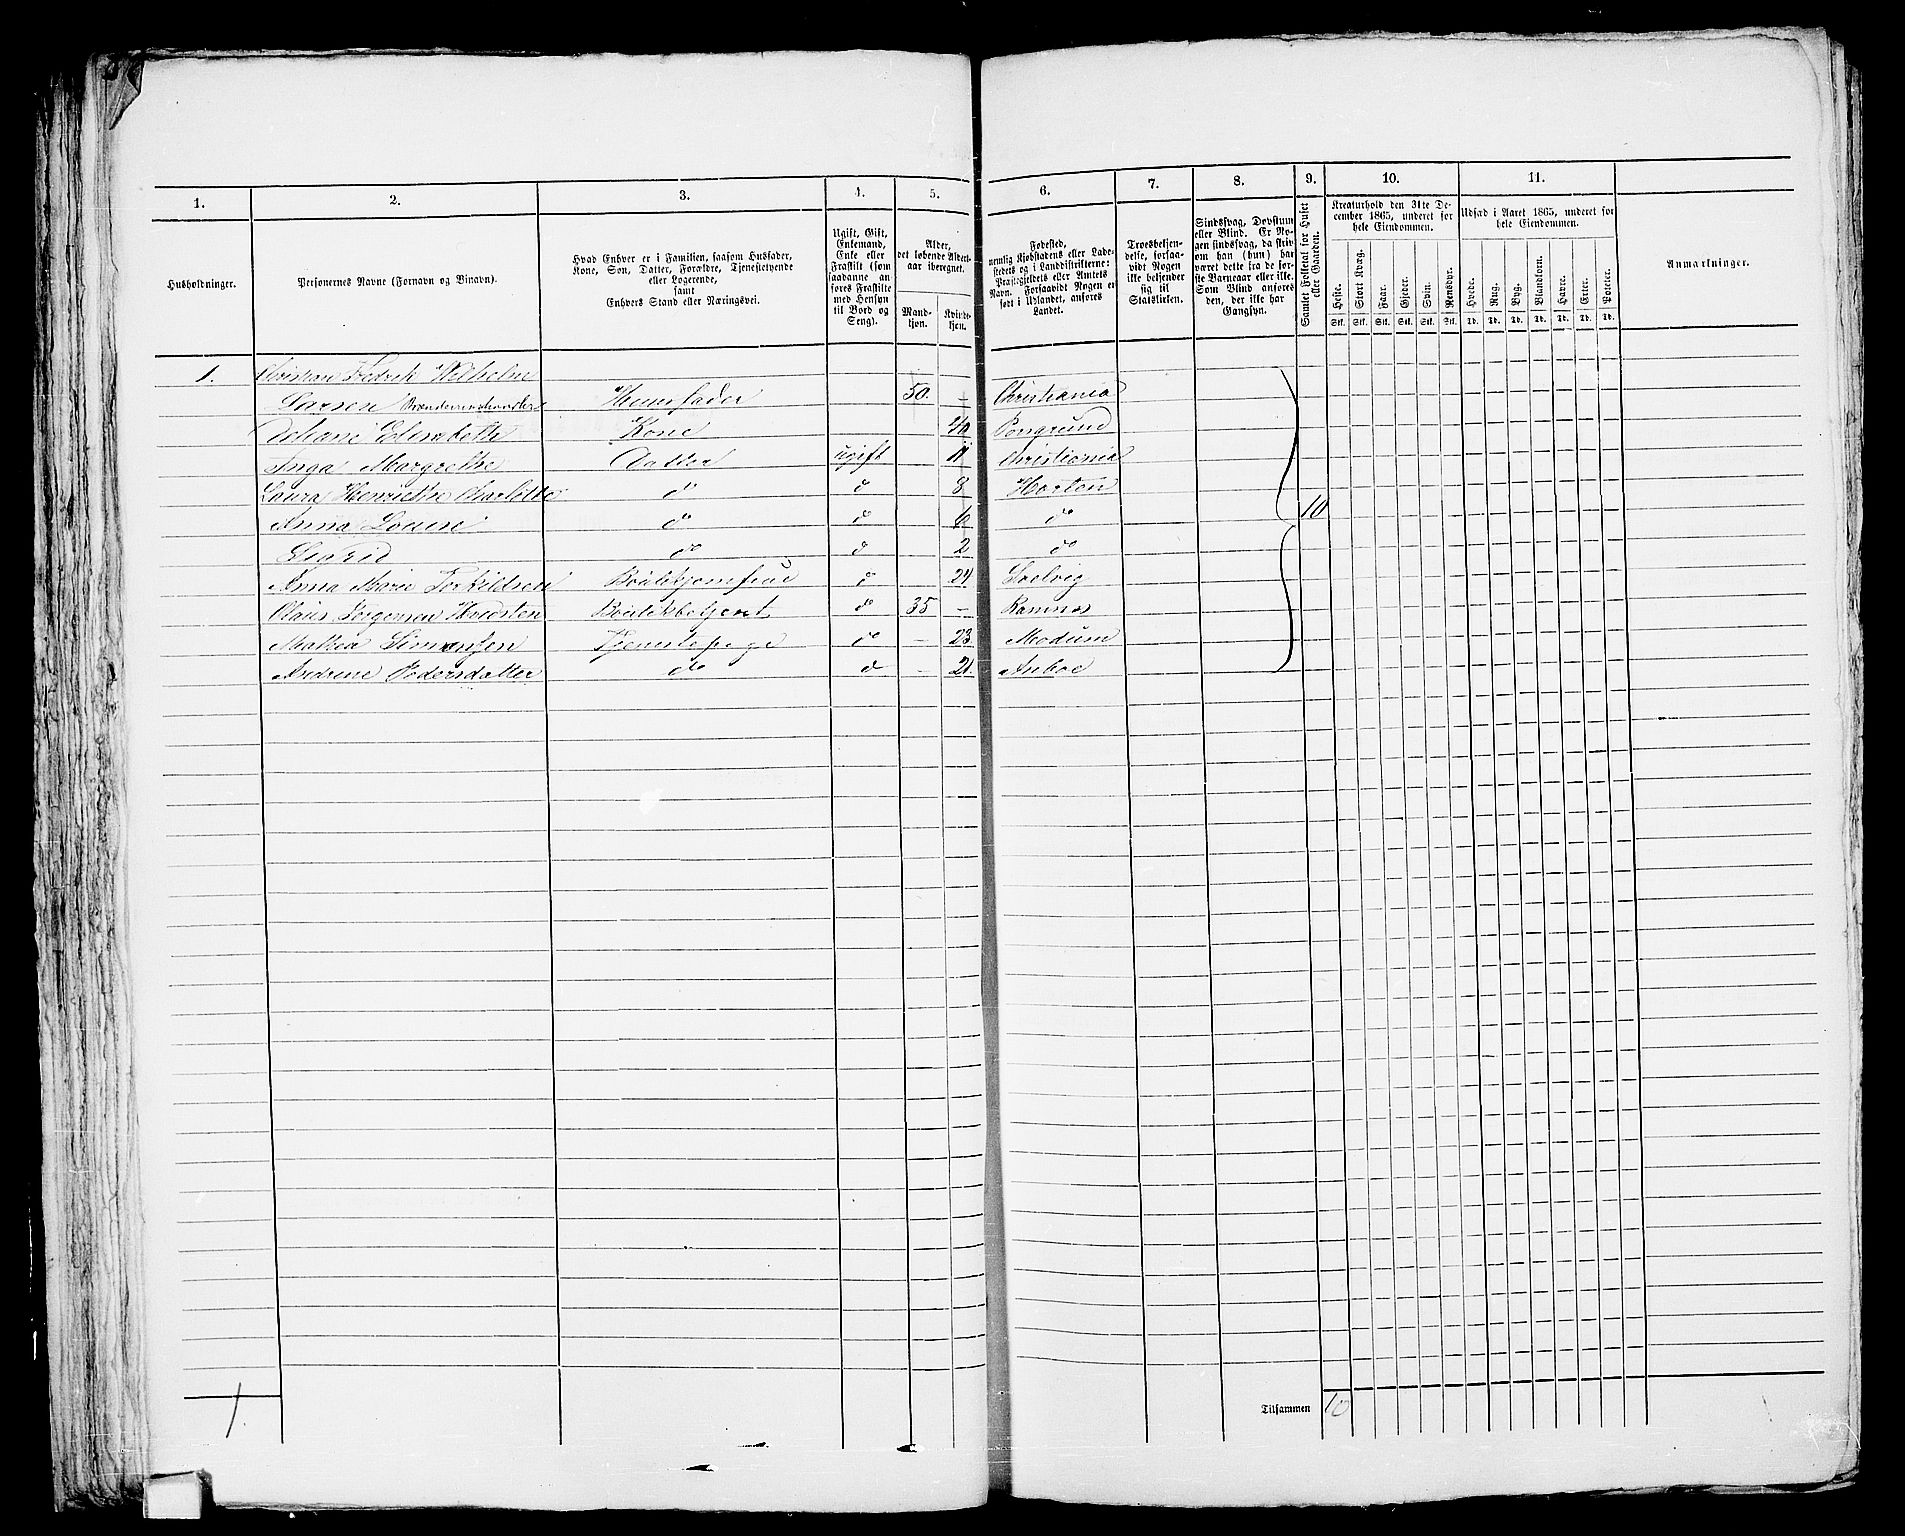 1.
2.
3.
4.
5.
6.
7.
8.
9.
10.
11.
Husholdninger.
Personernes Navne (Fornavn og Binavn).
Hvad Enhver er i Familien, saasom Husfader,
Kone, Søn, Datter, Forældre, Tjenestetyende
eller Logerende,
samt
Enhvers Stand eller Næringsvei.
Ugift, Gift,
Enkemand,
Enke eller
Fraskilt (som
saadanne an-
føres Fraskilte
med Hensyn
til Bord og
Seng).
Alder,
det løbende Alders-
aar iberegnet.
Mand-
kjøn.
Kvinde-
kjøn.
Fødested,
nemlig Kjøbstadens eller Lade-
stedets og i Landdistrikterne:
Præstegjeldets eller Amtets
Navn. Forsaavidt Nogen er
født i Udlandet, anføres
Landet.
Troesbekjen-
delse, forsaa-
vidt Nogen
ikke bekjender
sig til
Statskirken.
Sindssvag, Døvstum
eller Blind. Er No-
gen sindssvag, da skriv
om han (hun) har
været dette fra de før-
ste Barneaar eller ikke.
Som Blind anføres
den, der ikke har
Gangsyn.
Samlet Folketal for Huset
eller Gaarden.
Kreaturhold den 31te De-
cember 1865, underet for
hele Eiendommen.
Heste.
Stort Kvæg.
Faar.
Gjeder.
Svin.
Rensdyr.
Stk. Stk. Stk. Stk. Stk. Stk.
Udsæd i Aaret 1865, underet for
hele Eiendommen.
Hvede.
Rug.
Byg.
Blandkorn.
Havre.
Erter.
Poteter.
Td. Td. Td. Td. Td. Td. Td.
Anmærkninger.
1. Christian Fredrik Wilhelm
Larsen Brændevinshandler Huusfader 50. – Christiania
Johane Elisabeth Kone 40 Porsgrund
Inga Margrethe Datter ugift 11 Christiania
Laura Henriette Charlotte do do 8 Horten
Anna Louise do do 6 do
10
Sigrid do do 2 do
Anna Marie Torkildsen Boutikjomfrue do 24 Svelvig
Claus Jørgensen Hvidsten Boutiksbetjent do 35 – Ramnæs
Mathea Simensen Tjenestepige do – 23 Modum
Andrine Pedersdatter do do – 21.
1.
Tilsammen 10